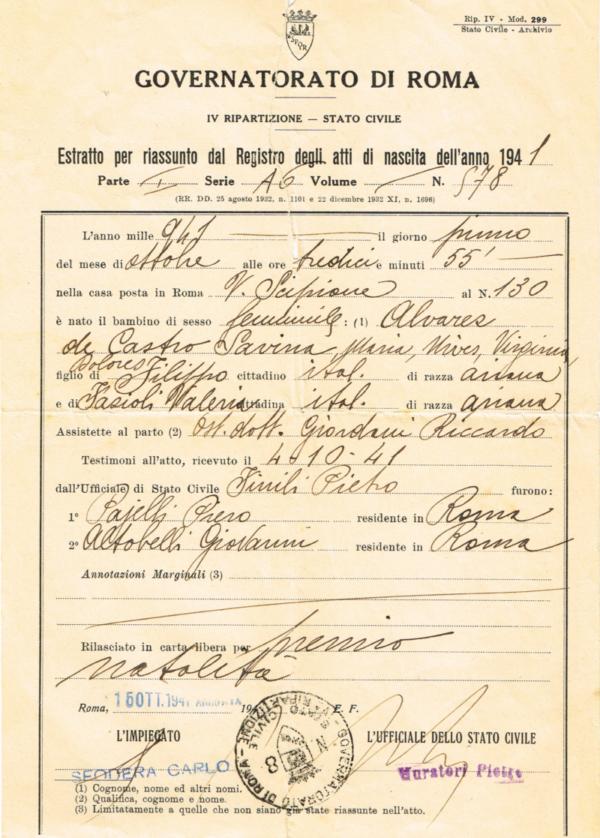 Rip. IV - Mod. 299
Stato Civile - Archivio
SPQR
GOVERNATORATO DI ROMA
IV RIPARTIZIONE — STATO CIVILE
Estratto per riassunto dal Registro degli atti di nascita dell'anno 1941
Parte I Serie A6 Volume — N. 578
(RR. DD. 25 agosto 1932, n. 1101 e 22 dicembre 1932 XI, n. 1696)
L'anno mille 941 il giorno primo
del mese di ottobre alle ore tredici e minuti 55' —
nella casa posta in Roma V. Scipione al N. 130
è nato il bambino di sesso femminile: (1) Alvares
de Castro Savina, Maria, Nives, Virginia,
Dolores
figlio di Filippo cittadino ital. di razza ariana
e di Fasioli Valeria cittadina ital. di razza ariana
Assistette al parto (2) Ost. dott. Giordani Riccardo
Testimoni all'atto, ricevuto il 4-10-41
dall'Ufficiale di Stato Civile Pietro furono:
1° Piero residente in Roma
2° Altobelli Giovanni residente in Roma
Annotazioni Marginali (3)
Rilasciato in carta libera per premio
natalità
Roma, 15 OTT. 1941 194 E. F.
L'IMPIEGATO L'UFFICIALE DELLO STATO CIVILE
GOVERNATORATO DI ROMA
STATO CIVILE
IV RIPARTIZIONE
N 8
SFODERA CARLO Muratori Pietro
(1) Cognome, nome ed altri nomi.
(2) Qualifica, cognome e nome.
(3) Limitatamente a quelle che non siano già state riassunte nell'atto.